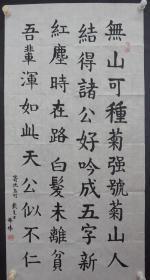 無山可種菊强號菊山人
結得諸公好吟成五字新
紅塵時在路白髮未離貧
吾輩渾如此天公似不仁